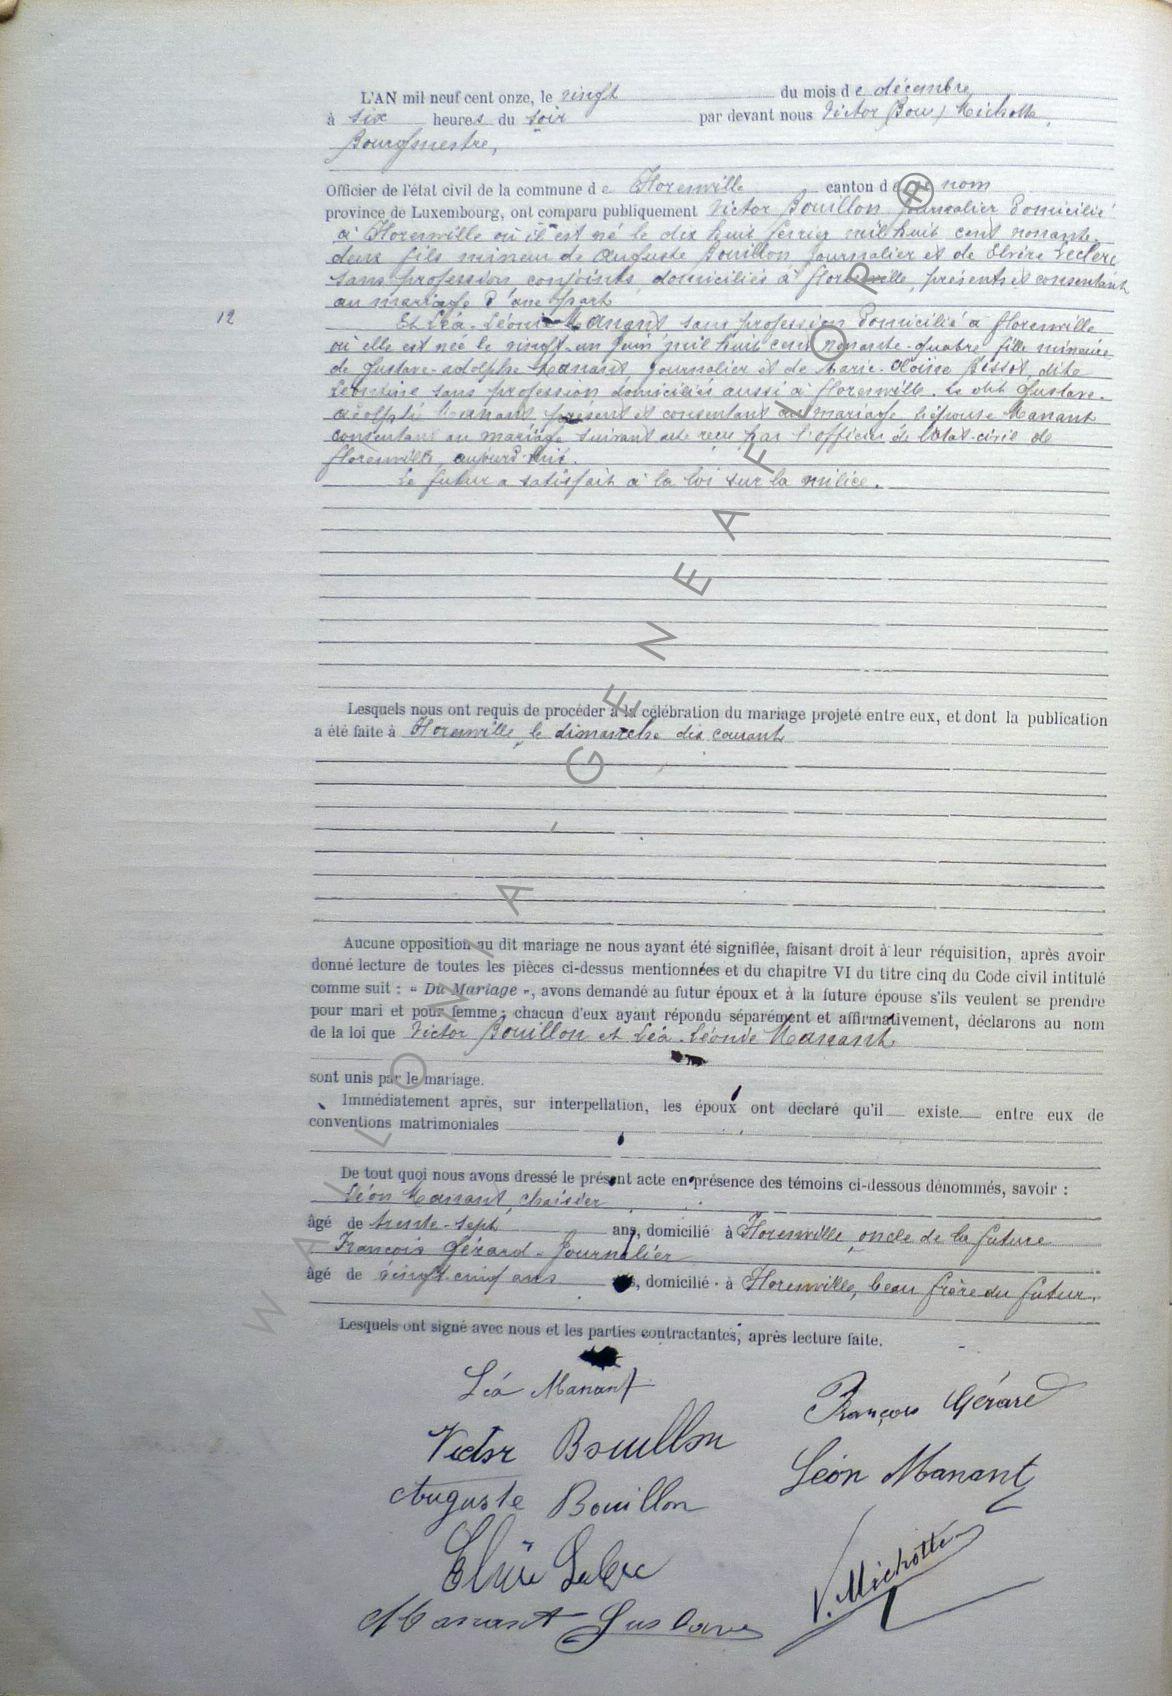 L'AN mil neuf cent onze, le vingt du mois de décembre
à six heures du soir par devant nous Victor (Bon) Michotte,
Bourgmestre,
Officier de l'état civil de la commune de Florenville canton de ce nom
province de Luxembourg, ont comparu publiquement Victor Bouillon journalier domicilié
à Florenville où il est né le dix huit février mil huit cent nonante-
deux fils mineur de Auguste Bouillon journalier et de Elvire Leclerc
sans profession, conjoints, domiciliés à Florenville, présents et consentant
au mariage d'une part
12
Et Léa-Léonie Manant sans profession domicilié à Florenville
où elle est née le vingt-un juin mil huit cent nonante-quatre fille mineure
de Gustave-adolphe Manant, journalier et de Marie-Eloïse Bissot, dite
Léontine sans profession domiciliés aussi à Florenville. Le dit Gustave-
adolphe Manant, présent et consentant au mariage l'épouse Manant
consentant au mariage suivant acte reçu par l'officier de l'état-civil de
Florenville, aujourd'hui.
Le futur a satisfait à la loi sur la milice.
Lesquels nous ont requis de procéder à la célébration du mariage projeté entre eux, et dont la publication
a été faite à Florenville, le dimanche dix courant
Aucune opposition au dit mariage ne nous ayant été signifiée, faisant droit à leur réquisition, après avoir
donné lecture de toutes les pièces ci-dessus mentionnées et du chapitre VI du titre cinq du Code civil intitulé
comme suit : « Du Mariage », avons demandé au futur époux et à la future épouse s'ils veulent se prendre
pour mari et pour femme ; chacun d'eux ayant répondu séparément et affirmativement, déclarons au nom
de la loi que Victor Bouillon et Léa-Léonie Manant
sont unis par le mariage.
Immédiatement après, sur interpellation, les époux ont déclaré qu'il existe entre eux de
conventions matrimoniales
De tout quoi nous avons dressé le présent acte en présence des témoins ci-dessous dénommés, savoir :
Léon Manant, chaisier
âgé de trente-sept ans, domicilié à Florenville, oncle de la future
François Gérard-Journalier
âgé de vingt-cinq ans domicilié à Florenville, beau frère du futur.
Lesquels ont signé avec nous et les parties contractantes, après lecture faite.
Léa Manant
François Gérard
Victor Bouillon
Léon Manant
Auguste Bouillon
Elvire Leclerc
V. Michotte
Manant Gustave
WALLONIA-GENEAFILOPR®